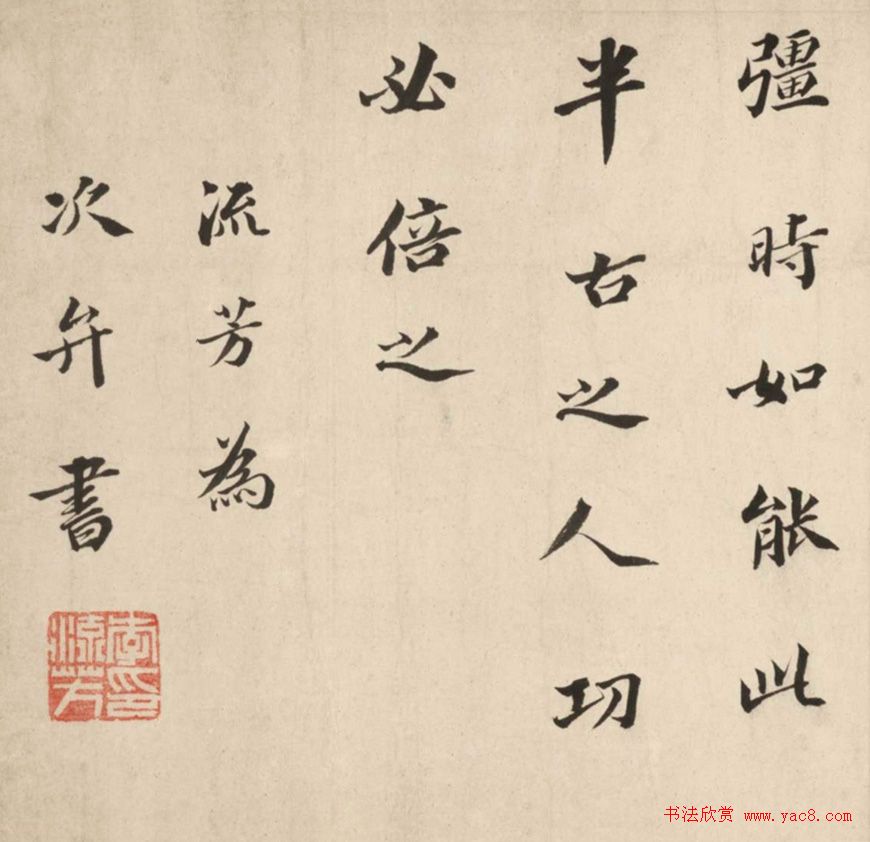 彊時如能此
半古之人功
必倍之
流芳為
次弁書
李流芳印
书法欣赏 www.yac8.com